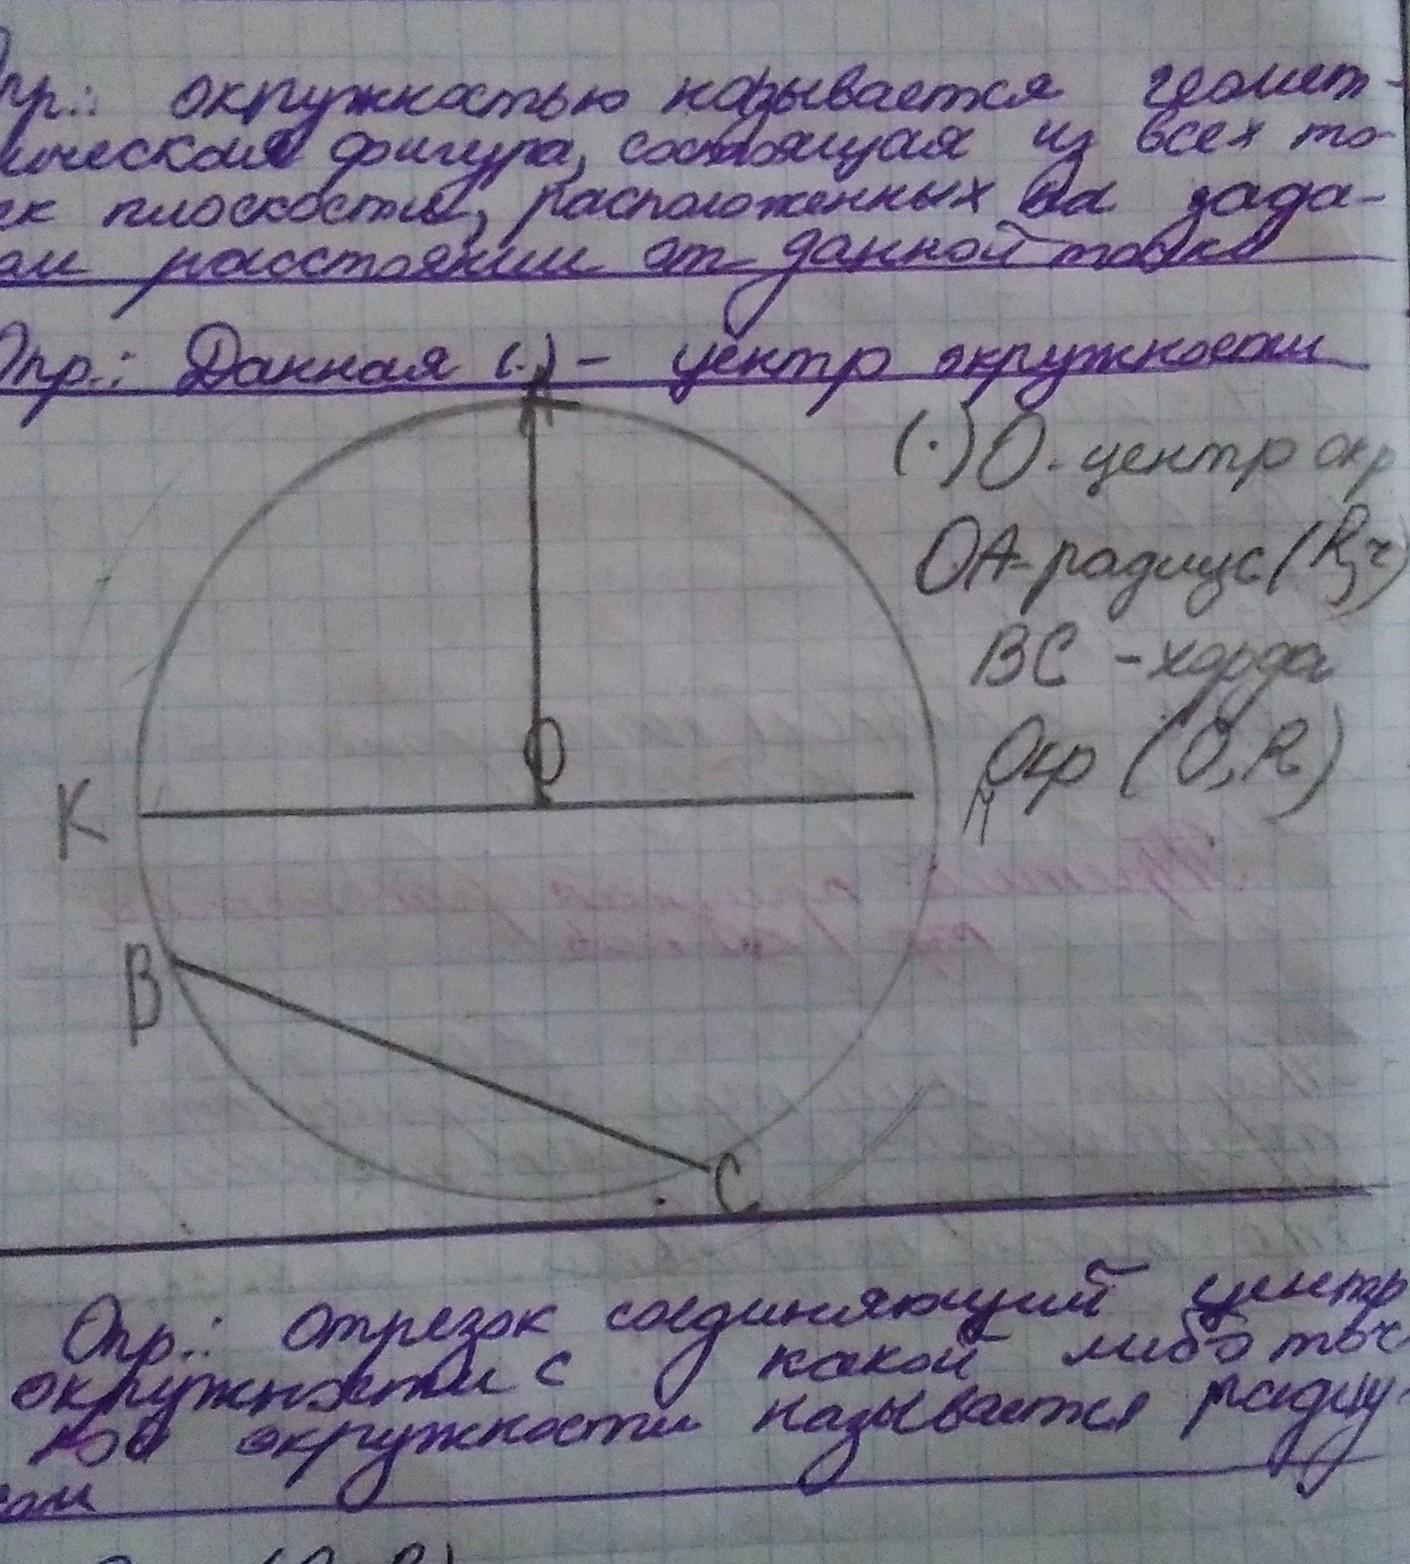 Опр.: окружностью называется геомет-
рической фигура, состоящая из всех то-
ек плоскости, расположенных на зада-
ом расстоянии от данной точки
Опр.: Данная (.) - центр окружности
A
(.) O - центр окр
OA - радиус (R, r)
BC - хорда
O
Окр (O, R)
K
B
C
Опр.: отрезок соединяющий центр
окружности с какой либо точ
кой окружности называется радиу-
сом